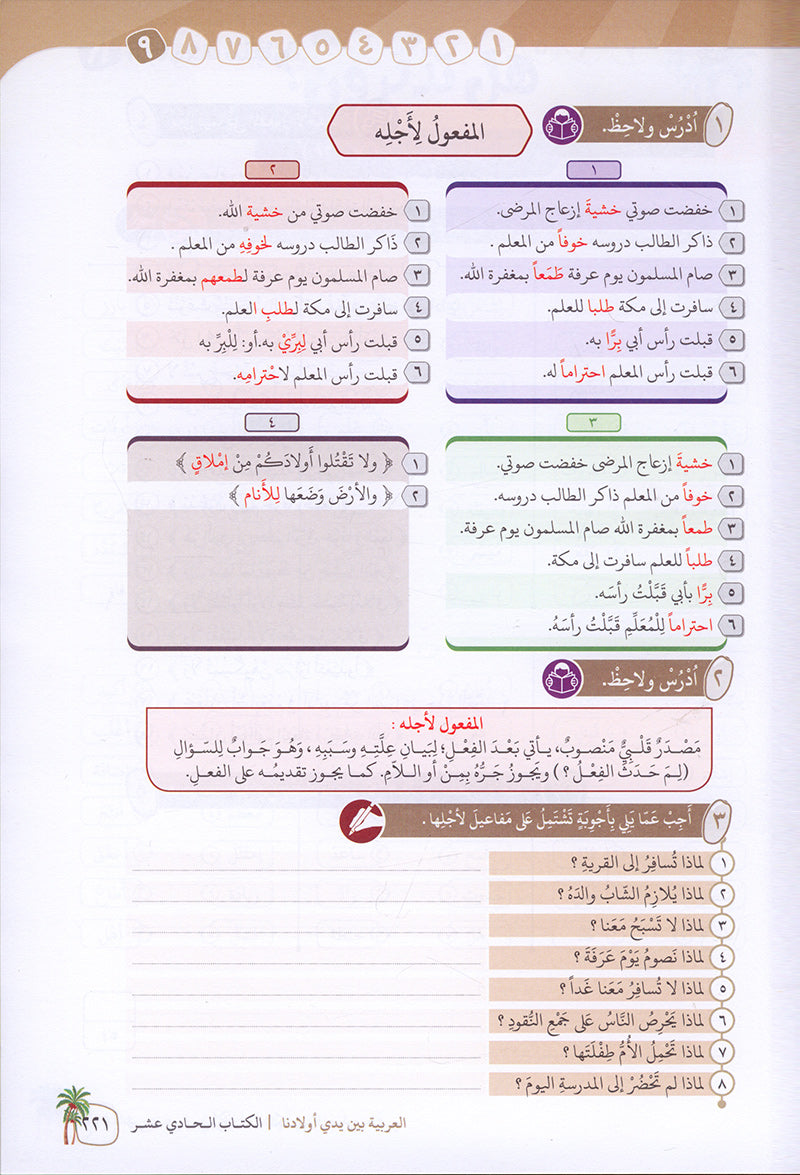 ١ ٢ ٣ ٤ ٥ ٦ ٧ ٨ ٩
١ اُدْرُسْ ولاحِظْ.
المفعولُ لِأَجْلِه
١
١ خفضت صوتي خشيةَ إزعاج المرضى.
٢ ذاكر الطالب دروسه خوفاً من المعلم .
٣ صام المسلمون يوم عرفة طَمَعاً بمغفرة الله.
٤ سافرت إلى مكة طلبا للعلم.
٥ قبلت رأس أبي بِرًّا به.
٦ قبلت رأس المعلم احتراماً له.
٢
١ خفضت صوتي من خشية الله.
٢ ذَاكر الطالب دروسه لخوفِهِ من المعلم .
٣ صام المسلمون يوم عرفة لطمعهم بمغفرة الله.
٤ سافرت إلى مكة لطلبِ العلم.
٥ قبلت رأس أبي لِبِرِّيْ به.أو: لِلْبِرِّ به
٦ قبلت رأس المعلم لاحْترامِه.
٣
١ خشيةَ إزعاج المرضى خفضت صوتي.
٢ خوفاً من المعلم ذاكر الطالب دروسه.
٣ طمعاً بمغفرة الله صام المسلمون يوم عرفة.
٤ طلباً للعلم سافرت إلى مكة.
٥ بِرًّا بأبي قَبَّلْتُ رأسَه.
٦ احتراماً لِلْمُعَلِّمِ قَبَّلْتُ رأسَهُ.
٤
١ ﴿ ولا تَقْتُلوا أَولادَكُمْ مِنْ إمْلاقٍ ﴾
٢ ﴿ والأرْضَ وَضَعَها لِلأَنام ﴾
٢ اُدْرُسْ ولاحِظْ.
المفعول لأجله :
مَصْدَرٌ قَلْبِيٌّ مَنْصوبٌ، يـأتي بَعْدَ الفِعْلِ؛ لِبَيانِ عِلَّتِهِ وسَبَبِهِ ، وَهُوَ جَوابٌ لِلسُؤالِ
(لِمَ حَدَثَ الفِعْلُ ؟ ) ويَجوزُ جَرُّهُ بِمِنْ أو اللاّمِ. كما يجوز تقديمُه على الفعلِ.
٣ أَجِبْ عَمّا يَلي بِأَجْوِبَةٍ تَشْتَمِلُ عَلى مَفاعيلَ لأجْلِها .
١ لماذا تُسافِرُ إلى القريةِ ؟
٢ لماذا يُلازِمُ الشّابُ والدَهُ ؟
٣ لماذا لا تَسْبَحُ مَعَنا ؟
٤ لماذا نَصومُ يَوْمَ عَرَفَةَ ؟
٥ لماذا لا تُسافِرُ مَعَنا غَداً ؟
٦ لماذا يَحْرِصُ النّاسُ عَلى جَمْعِ النُّقودِ ؟
٧ لماذا تَحْمِلُ الأُمُّ طِفْلَتَها ؟
٨ لماذا لم تَحْضُرْ إلى المدرسةِ اليومَ ؟
العربية بين يدي أولادنا | الكتاب الـحادي عشر ٢٢١